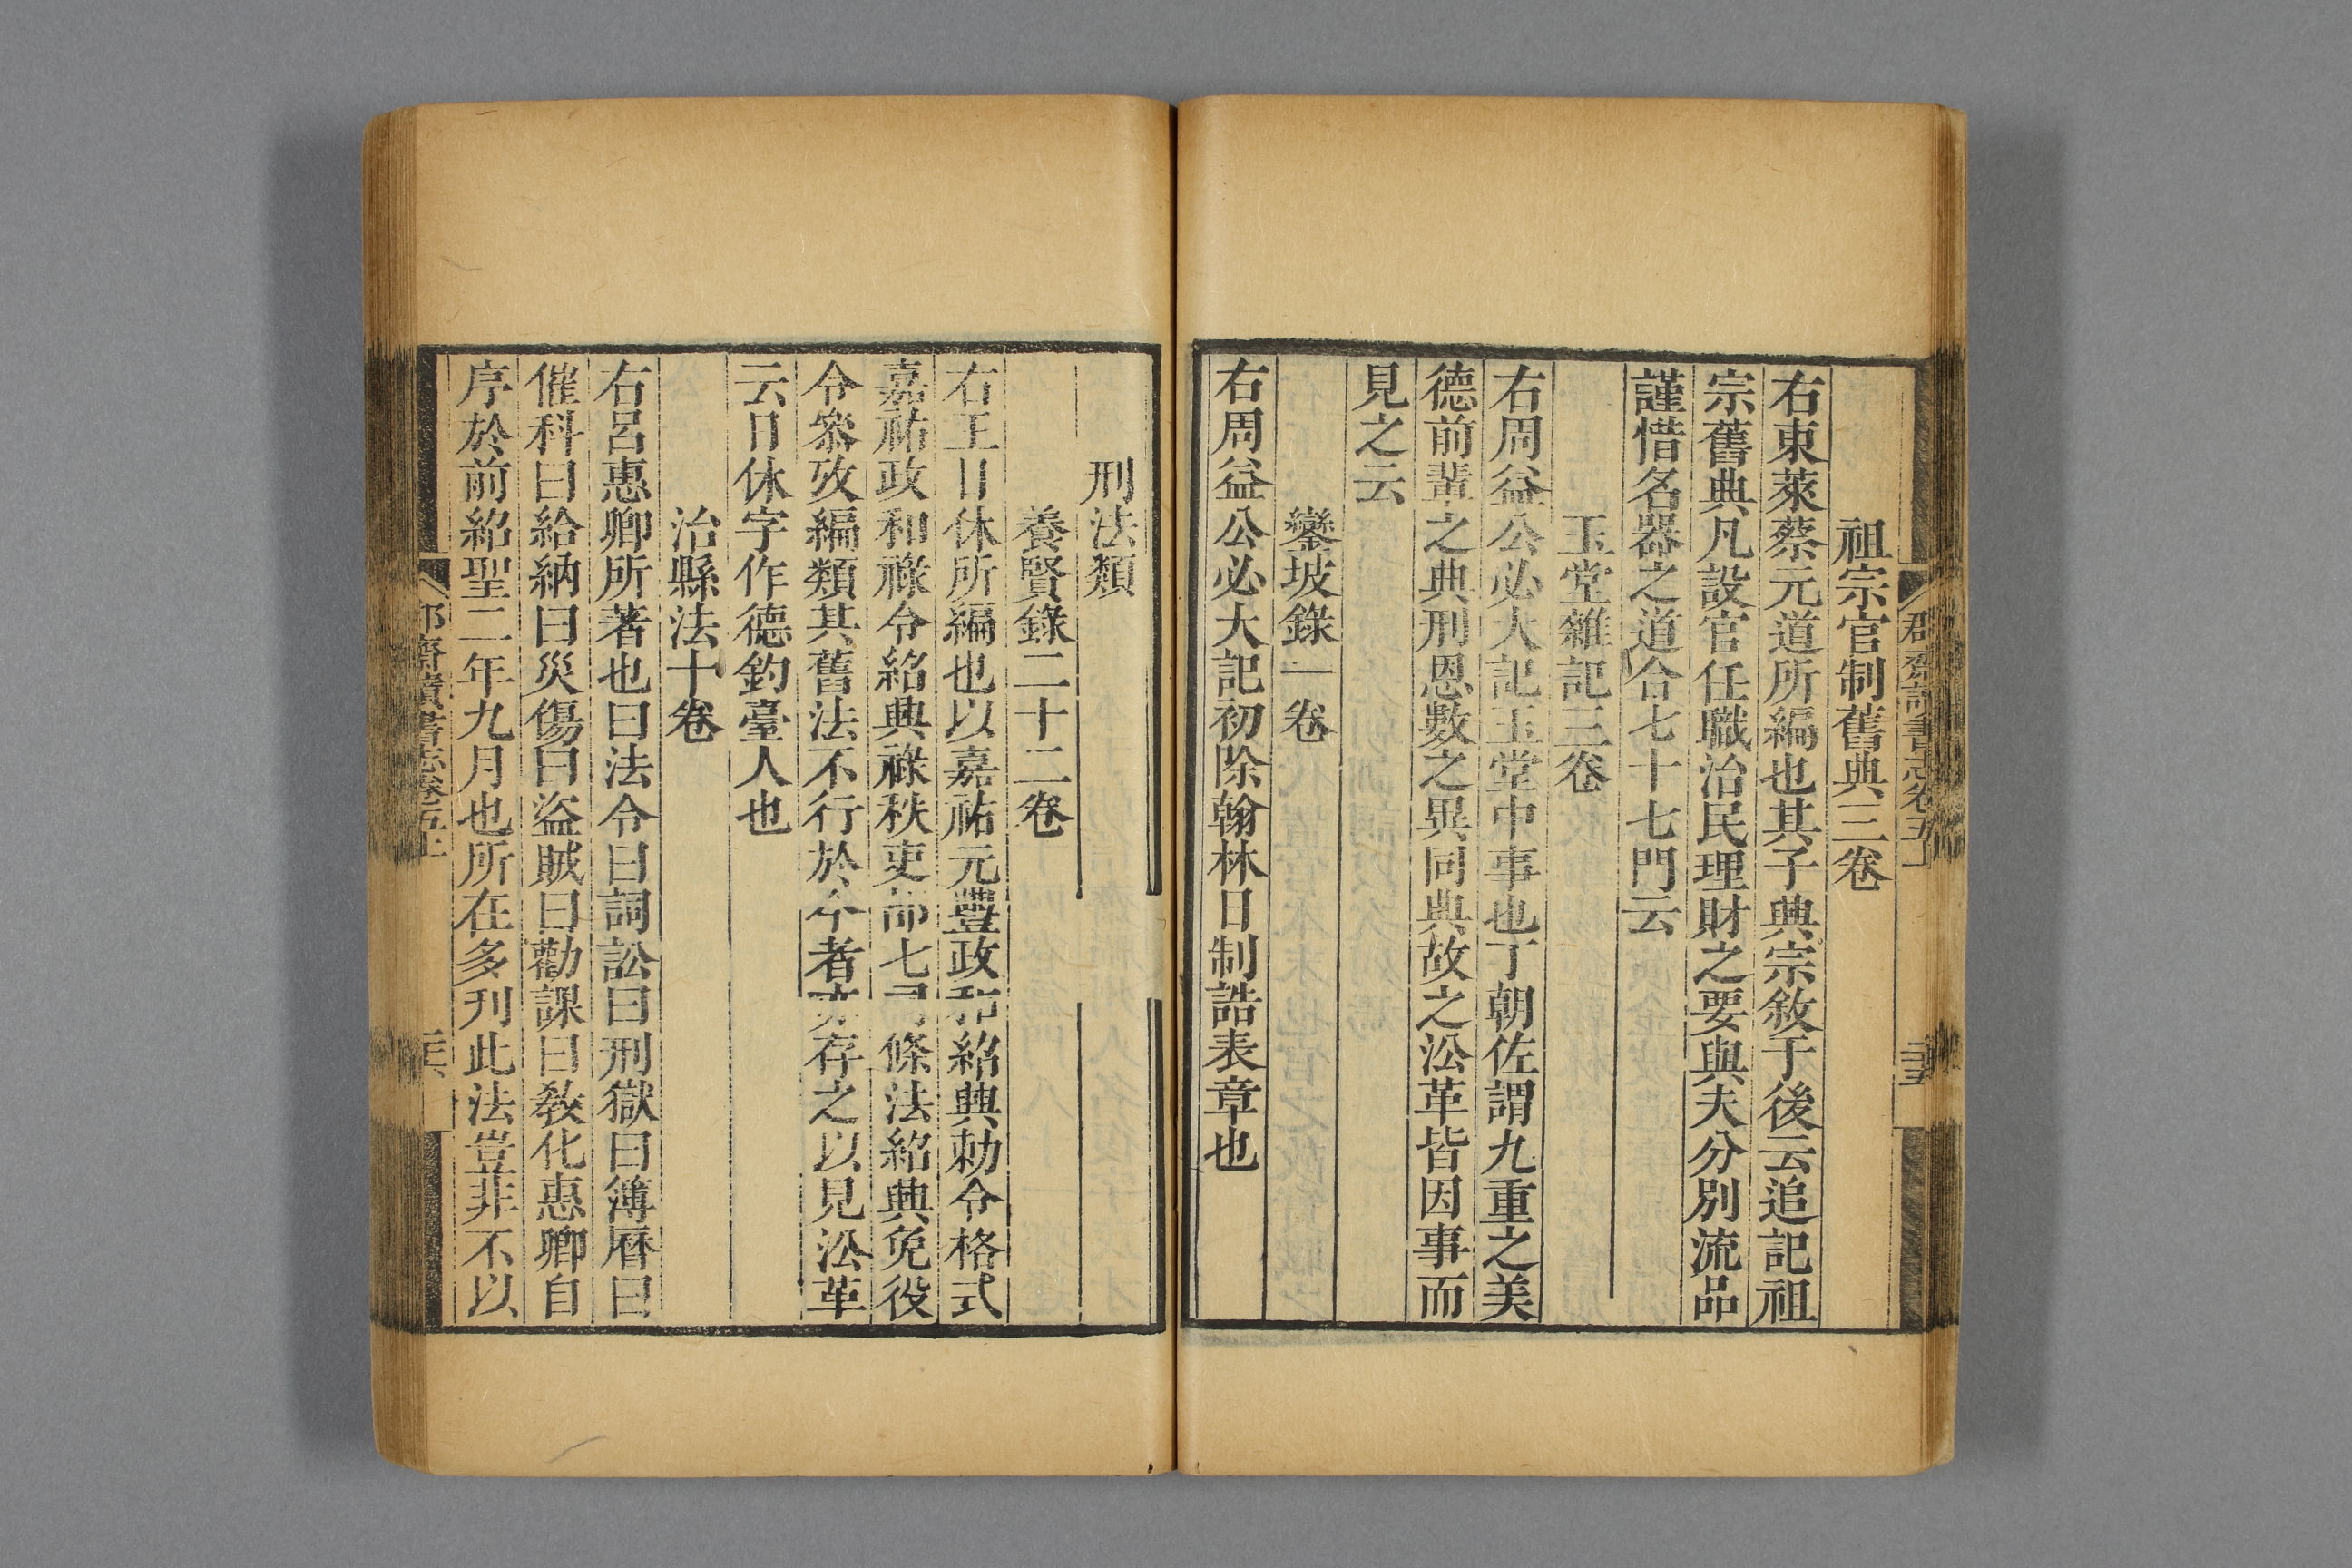 祖宗官制舊典三卷
右東萊蔡元道所編也其子興宗敘于後云追記祖
宗舊典凡設官任職治民理財之要與夫分別流品
謹惜名器之道合七十七門云
玉堂雜記三卷
右周益公必大記玉堂中事也丁朝佐謂九重之美
德前輩之典刑恩數之異同典故之㳂革皆因事而
見之云
鑾坡錄一卷
右周益公必大記初除翰林日制誥表章也
刑法類
養賢錄二十二卷
右王日休所編也以嘉祐元豐政和紹興勅令格式
嘉祐政和祿令紹興祿秩吏部七司條法紹興免役
令叅攷編類其舊法不行於今者亦存之以見㳂革
云日休字作德釣臺人也
治縣法十卷
右呂惠卿所著也曰法令曰詞訟曰刑獄曰簿曆曰
催科曰給納曰災傷曰盜賊曰勸課曰敎化惠卿自
序於前紹聖二年九月也所在多刋此法豈非不以